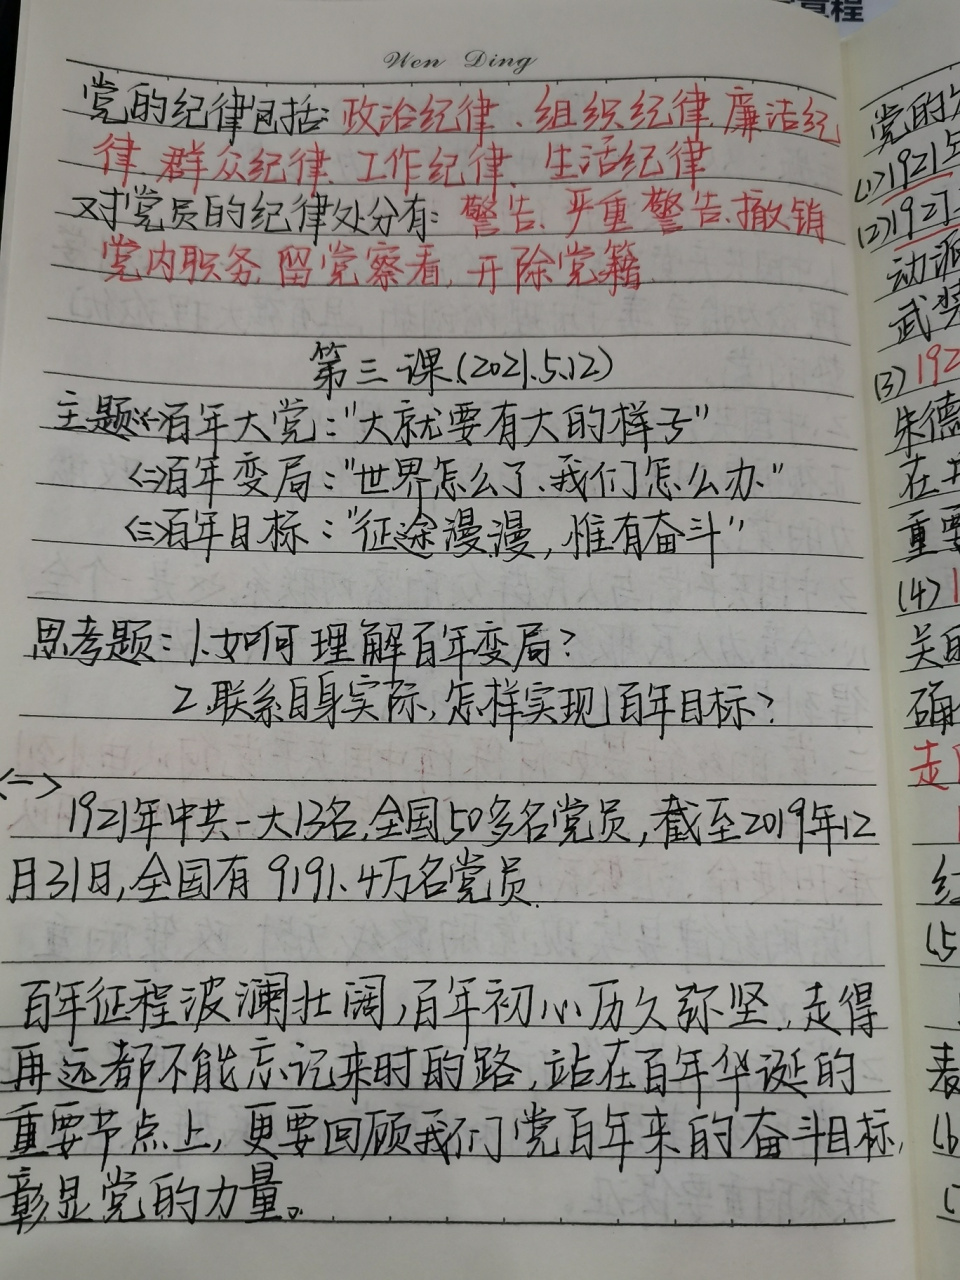 章程
Wen Ding
党的纪律包括:政治纪律、组织纪律、廉洁纪
律、群众纪律、工作纪律、生活纪律
对党员的纪律处分有:警告、严重警告、撤销
党内职务、留党察看、开除党籍.
第三课.(2021.5.12)
主题:<一>百年大党:"大就要有大的样子"
<二>百年变局:"世界怎么了、我们怎么办."
<三>百年目标:"征途漫漫,惟有奋斗"
思考题:1.如何理解百年变局?
2.联系自身实际,怎样实现百年目标?
<一>
1921年中共一大13名,全国50多名党员,截至2019年12
月31日,全国有9191.4万名党员.
百年征程波澜壮阔,百年初心历久弥坚.走得
再远都不能忘记来时的路,站在百年华诞的
重要节点上,更要回顾我们党百年来的奋斗目标,
彰显党的力量。
党的
(1)1921
(2)1927
动派
武装
(3)192
朱德
在井
重要
(4)1
关的
确
走
(5
表
(6